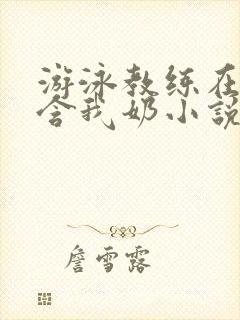 游泳教练在
含我奶小說
詹雪露